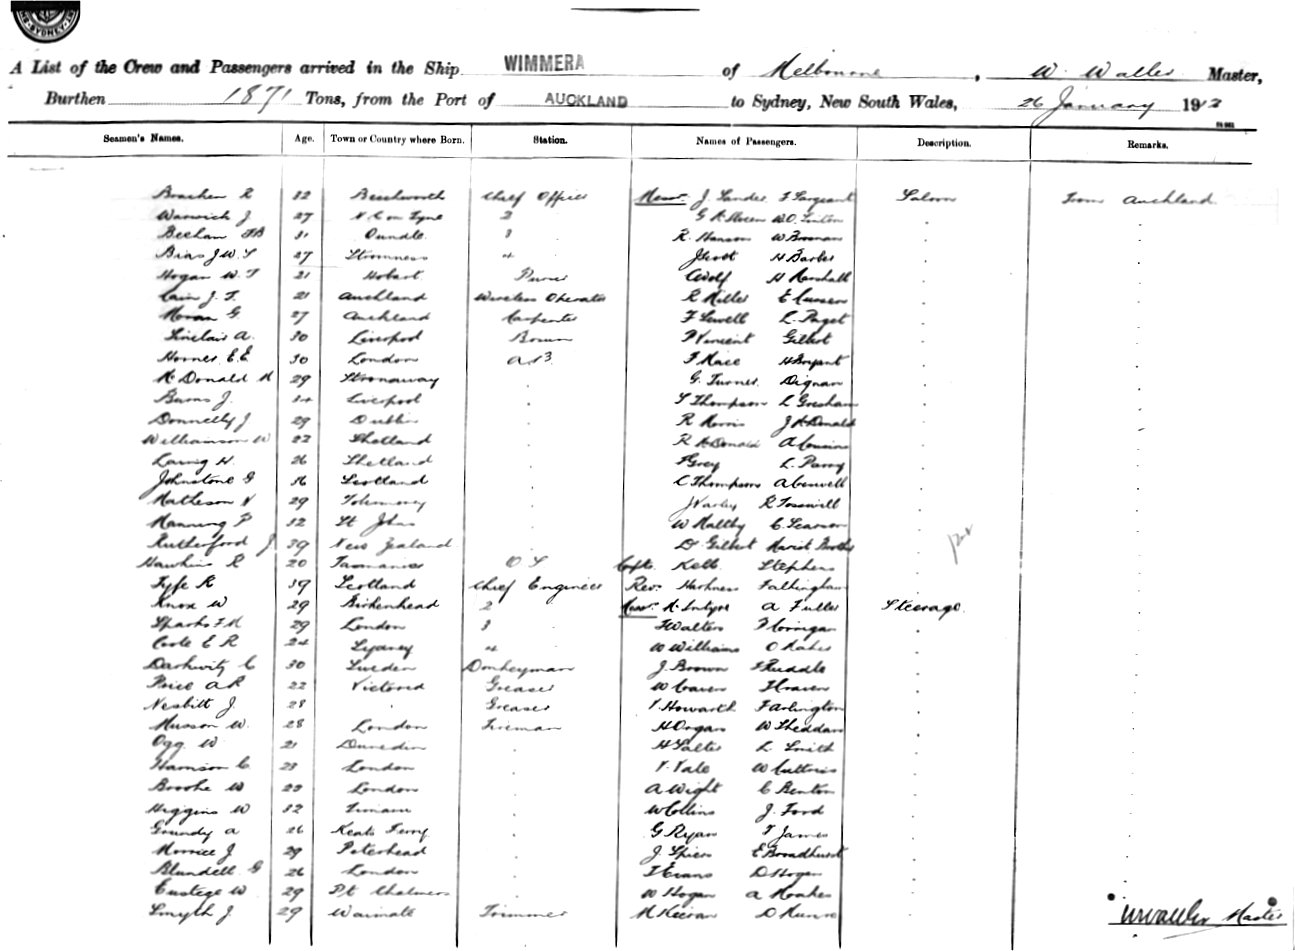 SYDNEY
A List of the Crew and Passengers arrived in the Ship WIMMERA of Melbourne, W. Waller Master,
Burthen 1871 Tons, from the Port of AUCKLAND to Sydney, New South Wales, 26 January 1912
Seamen's Names. Age. Town or Country where Born. Station. Names of Passengers. Description. Remarks.
Bracken R 32 Beechworth Chief Officer Messrs J. Sandes F Sargeant Saloon From Auckland
Warwick J. 27 N.C on Tyne 2 W.O. Linton
Beeham 31 Oundle 3 R. Hanson
Bias J W S 27 Stromness 4 J Scott H Barber
Hogan W. T 21 Hobart Purser H Marshall
Cain J. T. 21 Auckland Wireless Operator R Miller
Moran G 27 Auckland Carpenter F Sewell L. Paget
Sinclair A. 30 Liverpool Bosun F Vincent Gilbert
Horner E.E 30 London A.B. F Mace H Bryant
McDonald M 29 Stornaway G. Turner Dignan
Burns J. 34 Liverpool S Thompson L Gresham
Donnelly J 29 Dublin R Morris J McDonald
Williamson W 22 Shetland R McDonald A Cousins
Laurig H. 26 Shetland F Grey L. Parry
Johnstone G 36 Scotland C Thompson
Matheson N 29 J Varley R Tosswill
Manning P 32 St Johns W Maltby C. Pearson
Rutherford J 39 New Zealand Dr Gilbert Marist Bros
Hawkins R 20 Tasmania O S Capt. Kell Stephens
Fyfe R 39 Scotland Chief Engineer Rev. Harkness Fallingham
Knox W 29 Birkenhead 2 Messrs McIntyre A Fuller Steerage
Sparks F.H 29 London 3 F Walters
Coote E R 24 Sydney 4 W Williams O Oakes
Darkwitz C 30 Sweden Donkeyman J. Brown F Ruddle
Price A R 22 Victoria Greaser W Craven F Craven
Nesbitt J. 28 Greaser V. Howarth F Arlington
Musson W. 28 London Fireman H Organ W Sheddan
Ogg W 21 Dunedin H Salter L Smith
Harrison C 23 London V. Vale
Brooke W 22 London A Wight C Renton
Higgins W 32 Timaru W Collins J. Ford
Grundy A 26 G Ryan T James
Morrice J 29 Peterhead J Spiers E Broadhurst
Blundell G 26 London F Evans D Hogan
Eustege W 29 Pt Chalmers W Hogan A Noakes
Smyth J 29 Waimate Trimmer M Kieran D Munro
W Waller Master